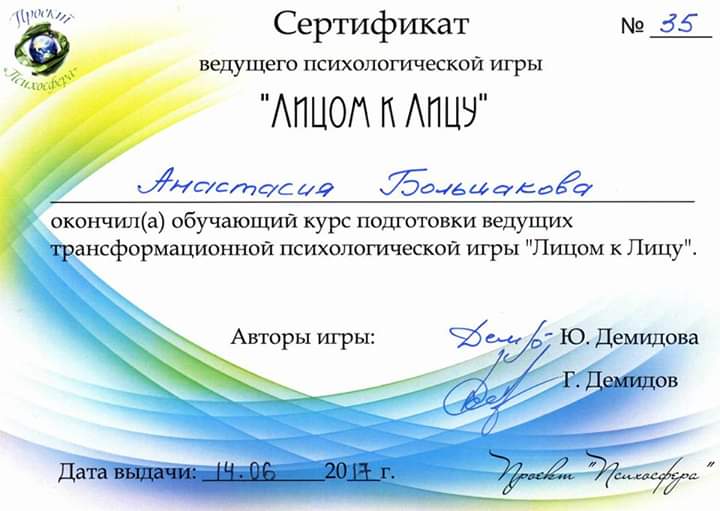 Проект
"Психосфера"
Сертификат
№ 35
ведущего психологической игры
"Лицом к Лицу"
Анастасия Большакова
окончил(а) обучающий курс подготовки ведущих
трансформационной психологической игры "Лицом к Лицу".
Авторы игры:
Ю. Демидова
Г. Демидов
Дата выдачи: 14.06 2017г.
Проект "Психосфера"